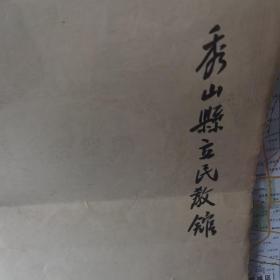 秀山縣立民教館